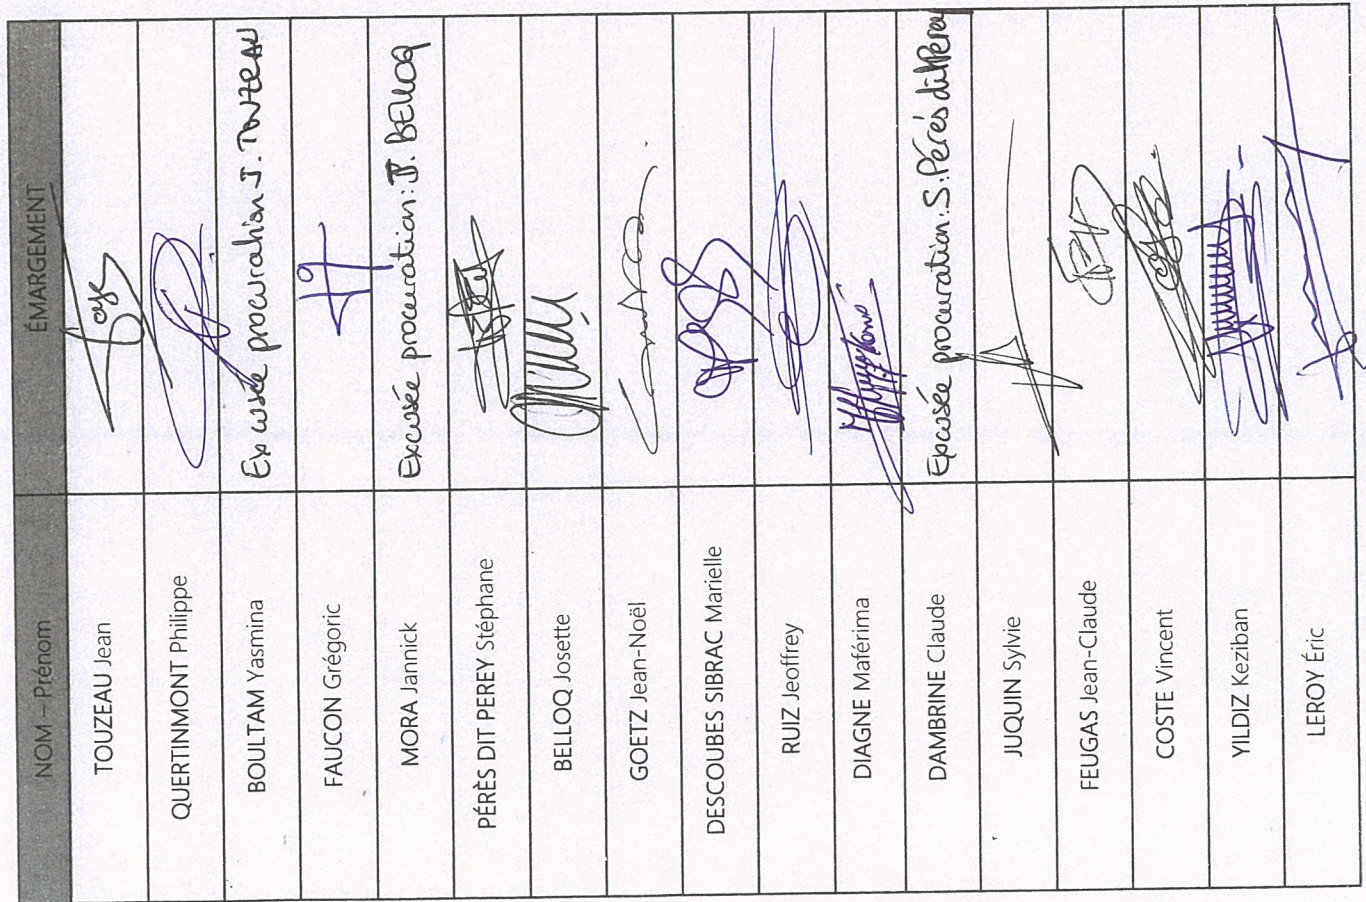 NOM – Prénom ÉMARGEMENT
TOUZEAU Jean
QUERTINMONT Philippe
BOULTAM Yasmina Excusée procuration J. TOUZEAU
FAUCON Grégoric
MORA Jannick Excusée procuration: JT. BELLOQ
PÉRÈS DIT PEREY Stéphane
BELLOQ Josette
GOETZ Jean-Noël
DESCOUBES SIBRAC Marielle
RUIZ Jeoffrey
DIAGNE Maférima
DAMBRINE Claude Excusée procuration: S. Pérès dit Perey
JUQUIN Sylvie
FEUGAS Jean-Claude
COSTE Vincent
YILDIZ Keziban
LEROY Éric